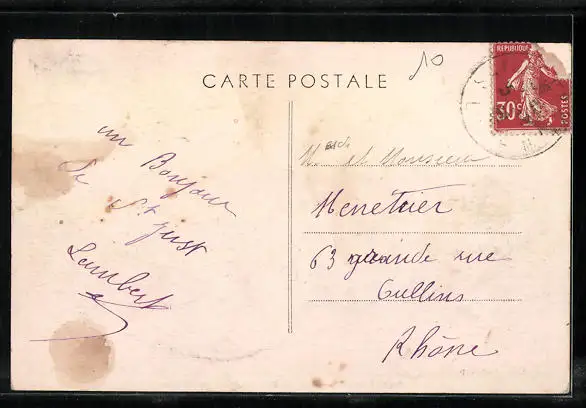 CARTE POSTALE
10
REPUBLIQUE
30c
POSTES
un Bonjour
de St Just
Lambert
et Monsieur
Menetrier
63 grande rue
Oullins
Rhône